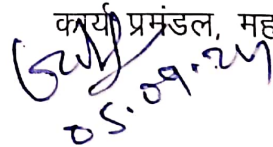 कार्य प्रमंडल, मह
05.09.24